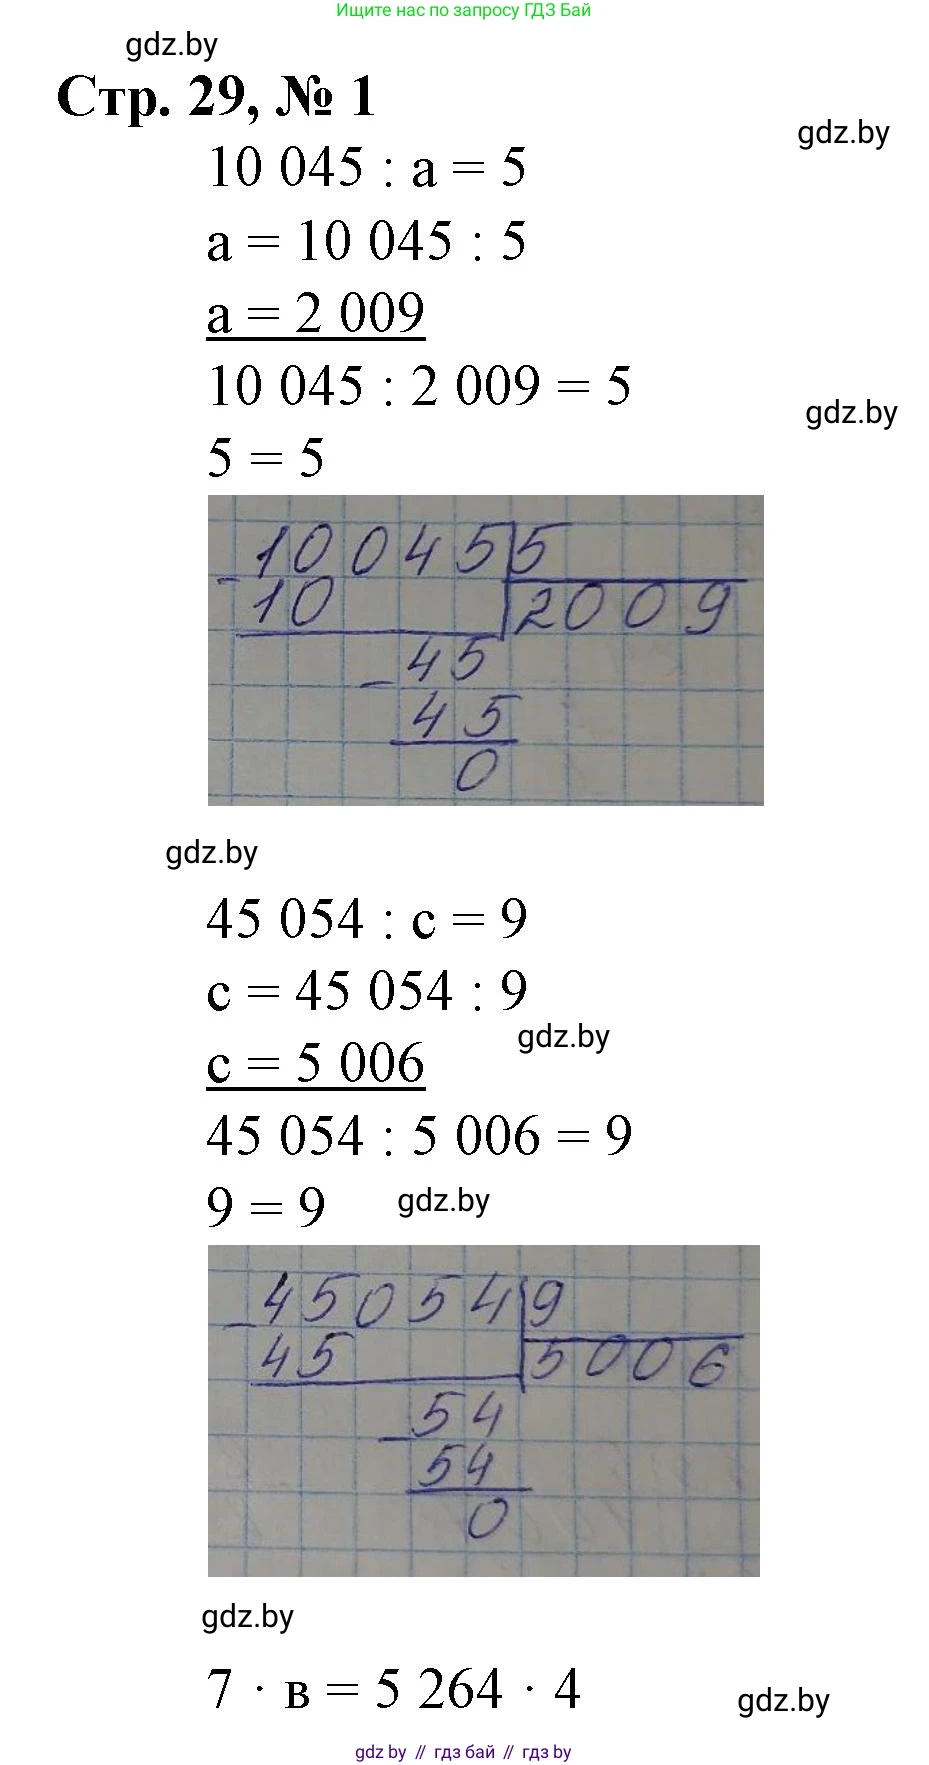 Ищите нас по запросу ГДЗ Бай
gdz.by
Стр. 29, № 1
gdz.by
10 045 : а = 5
а = 10 045 : 5
а = 2 009
10 045 : 2 009 = 5
gdz.by
5 = 5
10045 5
- 10 2009
- 45
45
0
gdz.by
45 054 : с = 9
с = 45 054 : 9
gdz.by
с = 5 006
45 054 : 5 006 = 9
9 = 9
gdz.by
- 45054 9
45 5006
- 54
54
0
gdz.by
7 · в = 5 264 · 4
gdz.by
gdz by // гдз бай // гдз by